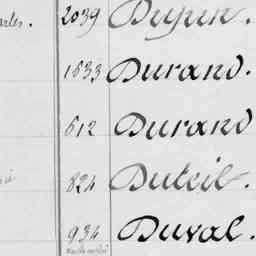 arles. 2039 Dupin.
1633 Durand.
612 Durand
824 Duteil.
934 Duval.